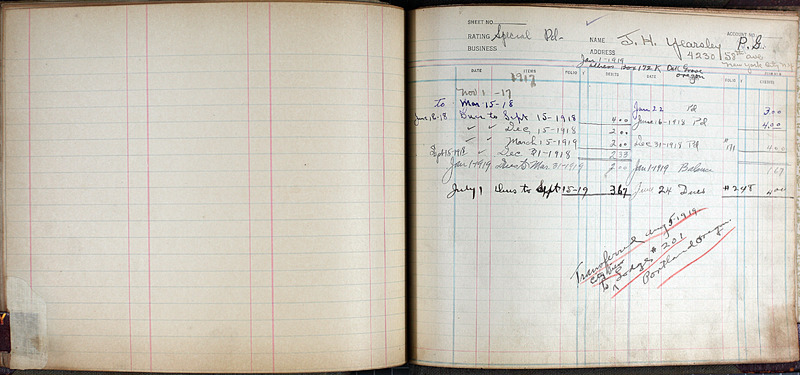 SHEET NO.
RATING Special Pd- NAME J. H. Yearsley ACCOUNT NO. P.G.
BUSINESS ADDRESS 4230 58th ave
Jan 1-1919 Box 172 K Oak Grove New York City N.Y.
Oregon
DATE ITEMS FOLIO DEBITS DATE FOLIO CREDITS
1917
Nov 1 -17
to Mar 15-18 Jan 22 Pd 3.00
June 16-18 Dues to Sept 15-1918 4.00 June 16-1918 Pd 4.00
" " Dec 15-1918 2.00
" " March 15-1919 2.00 Dec 31-1918 Pd 4.00
Sept 15-1918 " Dec 31-1918 2.33
Jan 1-1919 Dues to Mar 31-1919 2.00 Jan 1-1919 Balance 1.67
July 1 Dues to Sept 15-19 3.67 June 24 Dues #248 4.00
Transferred Aug 5-1919
to Lodge # 201
Portland Oregon.